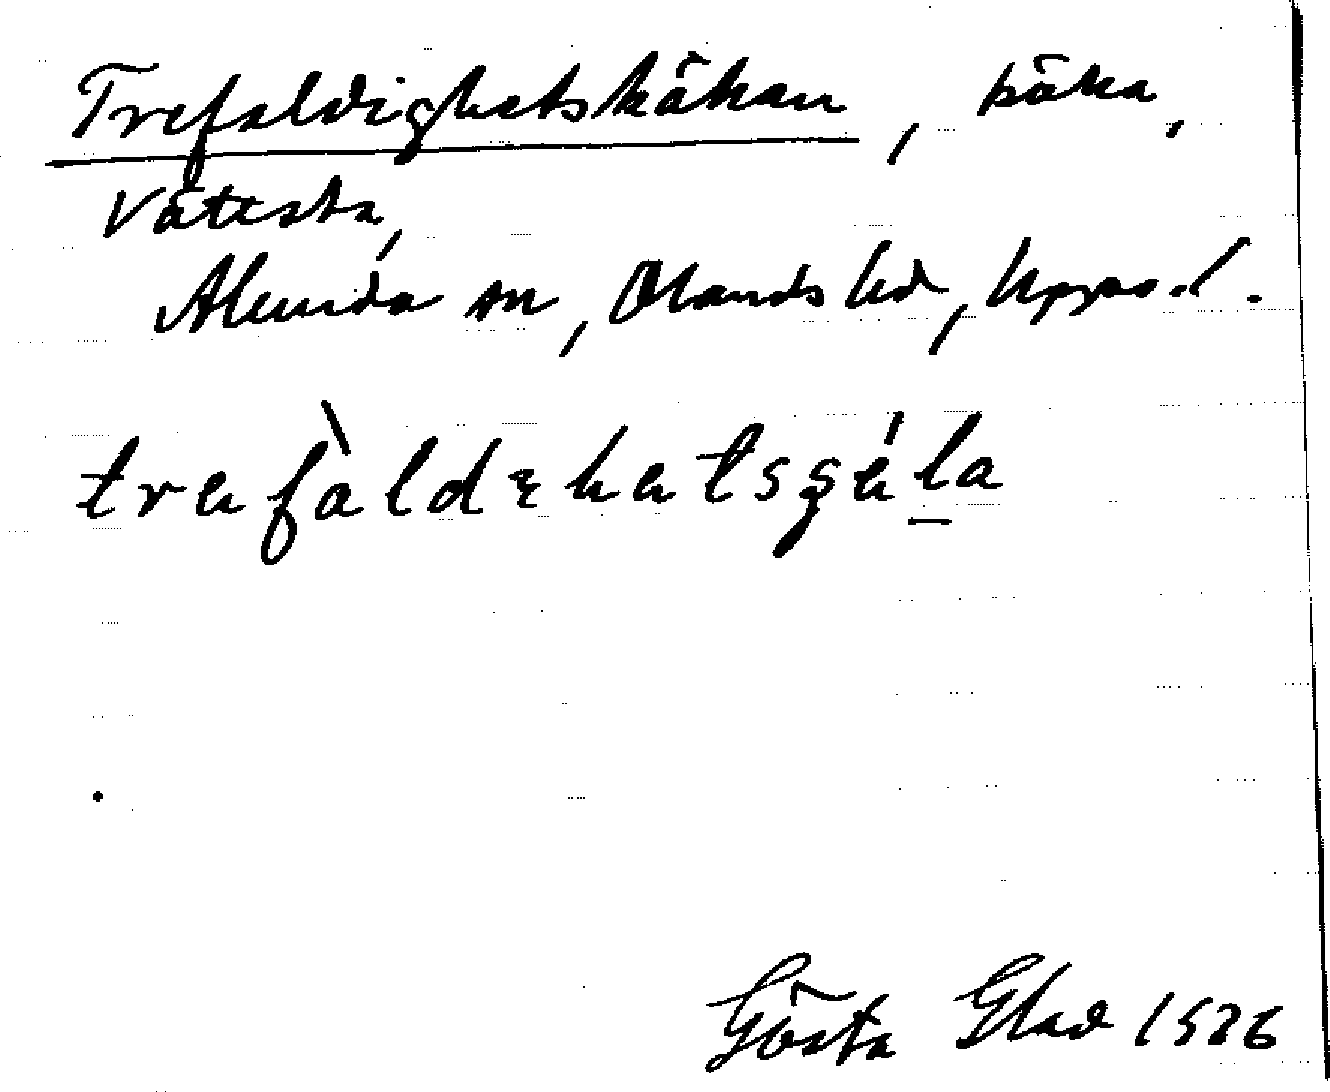 Trefaldighetskällan, källa,
Vättesta,
Alunda sn, Olands hd, Upps. l.
trefàldehetsşéla
Gösta Glad 1926